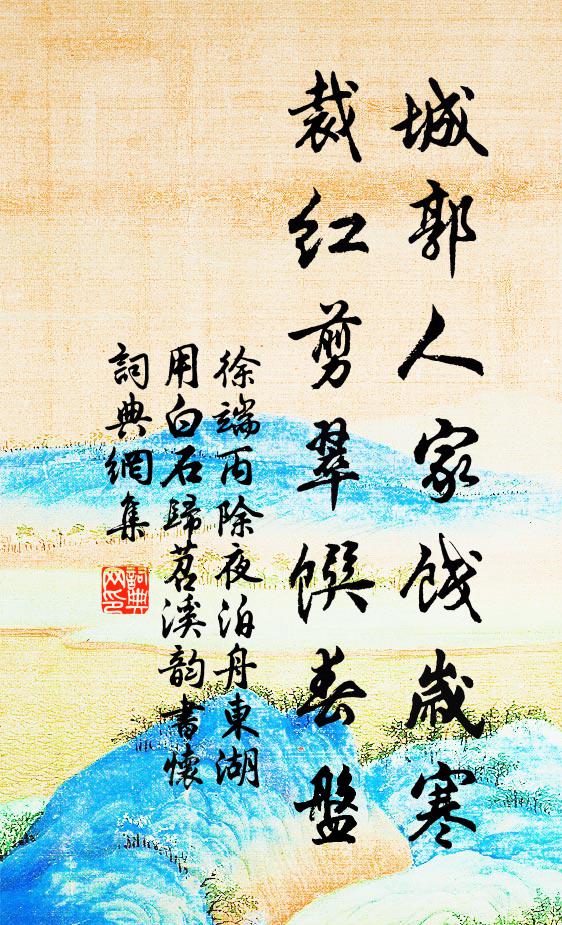 城郭人家餞歲寒
裁紅剪翠饌春盤
徐端丙除夜泊舟東湖
用白石歸苕溪韵書懷
詞典網集
詞典網印